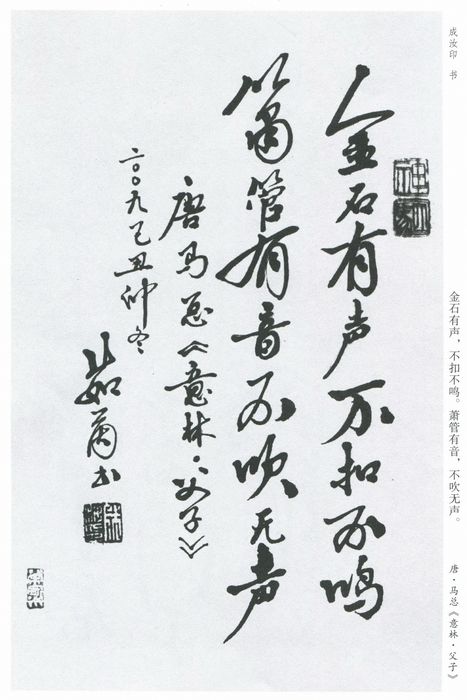 成汝印 书
金石有声，不扣不鸣。萧管有音，不吹无声。
唐·马总《意林·父子》
金石有声不扣不鸣
箫管有音不吹无声
唐马总《意林·父子》
二〇〇九己丑仲冬
书